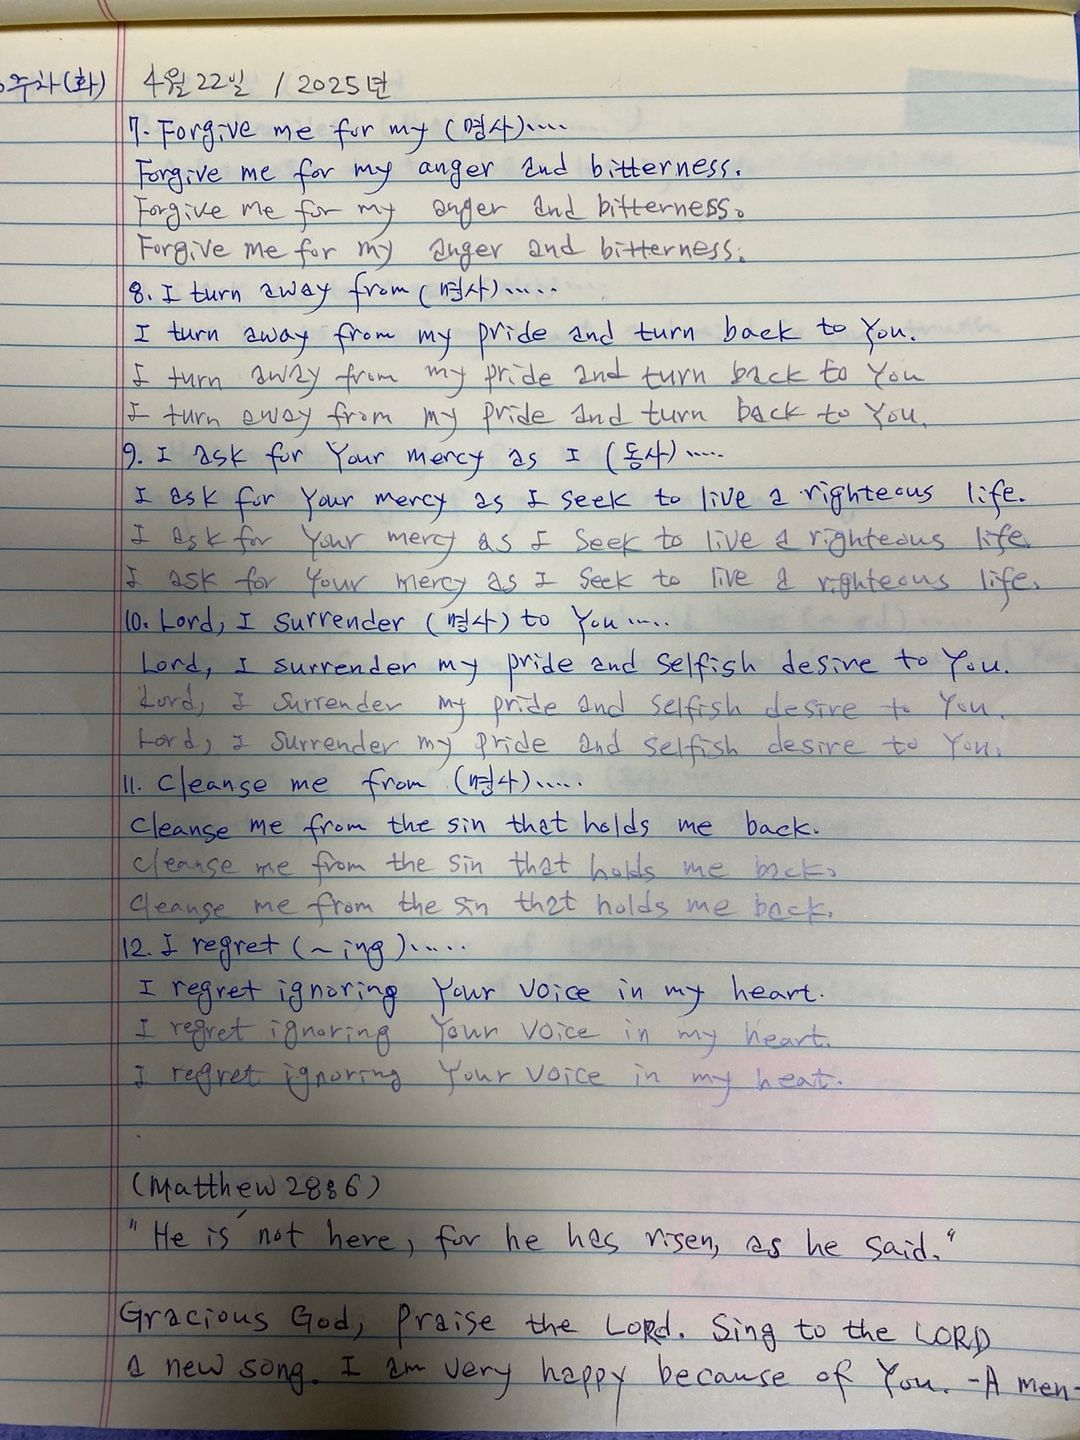 주차(화) 4월 22일 / 2025년
7. Forgive me for my (명사)....
Forgive me for my anger and bitterness.
Forgive me for my anger and bitterness.
Forgive me for my anger and bitterness.
8. I turn away from (명사).....
I turn away from my pride and turn back to You.
I turn away from my pride and turn back to You
I turn away from my pride and turn back to You.
9. I ask for Your mercy as I (동사).....
I ask for Your mercy as I seek to live a righteous life.
I ask for Your mercy as I seek to live a righteous life.
I ask for Your mercy as I seek to live a righteous life.
10. Lord, I surrender (명사) to You.....
Lord, I surrender my pride and selfish desire to You.
Lord, I surrender my pride and selfish desire to You.
Lord, I surrender my pride and selfish desire to You.
11. Cleanse me from (명사).....
Cleanse me from the sin that holds me back.
Cleanse me from the sin that holds me back.
Cleanse me from the sin that holds me back.
12. I regret (~ing).....
I regret ignoring Your voice in my heart.
I regret ignoring Your voice in my heart.
I regret ignoring Your voice in my heat.
(Matthew 28:6)
"He is not here, for he has risen, as he said."
Gracious God, Praise the LORD. Sing to the LORD
a new song. I am very happy because of You. -A men-